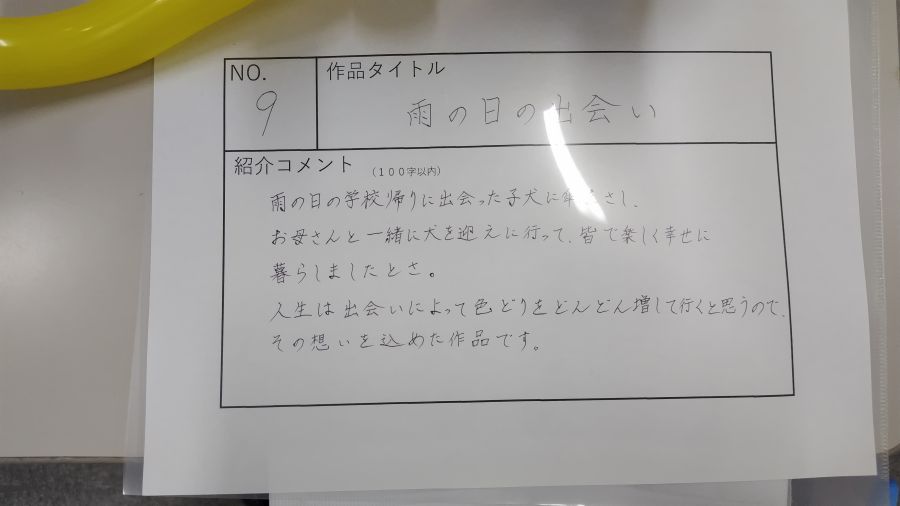 NO.
9
作品タイトル
雨の日の出会い
紹介コメント (100字以内)
雨の日の学校帰りに出会った子犬に さし、
お母さんと一緒に犬を迎えに行って、皆で楽しく幸せに
暮らしましたとさ。
人生は出会いによって色どりをどんどん増して行くと思うので、
その想いを込めた作品です。